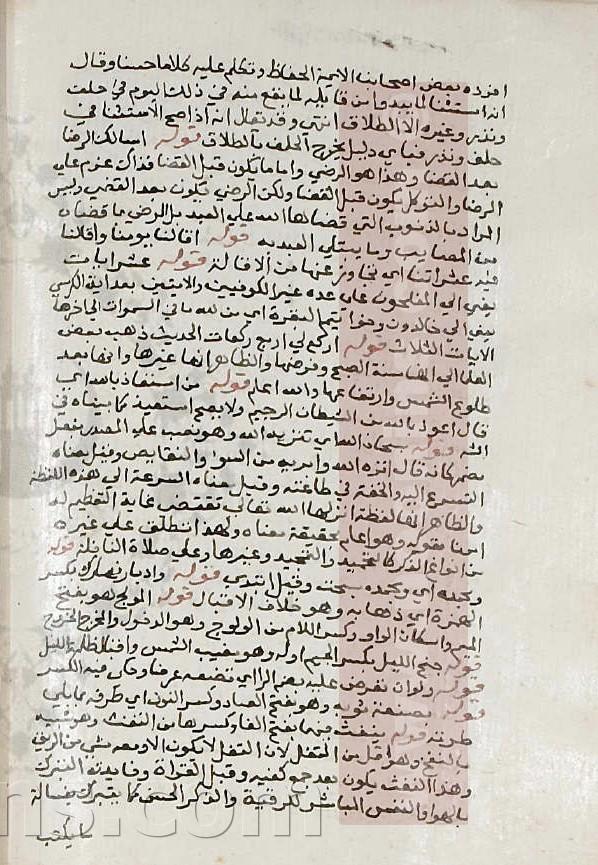 افرده بعض اصحابنا الايمة الحفاظ وتكلم عليه كلاما حسنا وقال
انه استثنا لما يبدوا من قايله لما يقع منه في ذلك اليوم في حلف
ونذر وغيره الا الطلاق انتهي وقد يقال انه اذا صح الاستثنا في
حلف ونذر فباي دليل يخرج الحلف بالطلاق قوله اسالك الرضا
بعد القضا وهذا هو الرضي واما ما يكون قبل القضا فذاك عزم علي
الرضا والتوكل يكون قبل القضا ولكن الرضي يكون بعد القضي وليس
المراد بالذنوب التي قضاها الله علي العبد بل الرضي بما قضاه
من المصايب وما يبتلي العبد به قوله اقالنا يومنا واقالنا
فيه عثراتنا اي تجاوز عنها من الاقالة قوله عشر ايات
يعني الي المفلحون علي عده غير الكوفيين والايتين بعد اية الكرسي
يعني الي خالدون وخواتيم البقرة اي من لله ما في السموات الي اخرها
الايات الثلاث قوله اركع لي اربع ركعات الحديث ذهب بعض
العلما الي انها سنة الصبح وفرضها والظاهر انها غيرها وانها بعد
طلوع الشمس وارتفاعها والله اعلم قوله من استعاذ بالله اي
قال اعوذ بالله من الشيطان الرجيم ولا يصح استعيذ كما بيناه في
النشر قوله سبحان الله اي تنزيه الله وهو نصب علي المصدر بفعل
مضمر كانه قال انزه الله وابريه من السوء والنقايص وقيل معناه
التسرع اليه والخفة في طاعته وقيل معناه السرعة الي هذه اللفظة
والظاهر انها لفظة انزلها الله تعالي تقتضي غاية التعظيم له
امرنا بقوله وهو اعلم بحقيقة معناه ولهذا انطلق علي غيره
من انواع الذكر كالتحميد والتمجيد وغيرها وعلي صلاة النافلة قوله
وبحمده اي وبحمده سبحت وقيل ابتدي قوله وادبار نهارك بكسر
الهمزة اي ذهابه وهو خلاف الاقبال قوله المولج هو بفتح
الميم واسكان الواو وكسر اللام من الولوج وهو الدخول والمخرج الخروج
قوله جنح الليل بكسر الجيم اوله وهو مغيب الشمس واقبال ظلمة الليل
قوله ولو ان تعرض عليه بضم الراي تضعه عرضا وحكي فيه الكسر
قوله بصنفة ثوبه وهو بفتح الصاد وكسر النون اي طرفه مما يلي
طرته قوله ينفث فيهما بفتح الفا وكسرها من النفث وهو شبيه
بالنفخ وهو اقل من التفل لان التفل لا يكون الا ومعه شي من الريق
وهذا النفث يكون بعد جمع كفيه وقبل القراة وفايدته التبرك
بالهوا والنفس المباشر للرقية والذكر الحسن كما يتبرك بغسالة
ما يكتب
ns.com